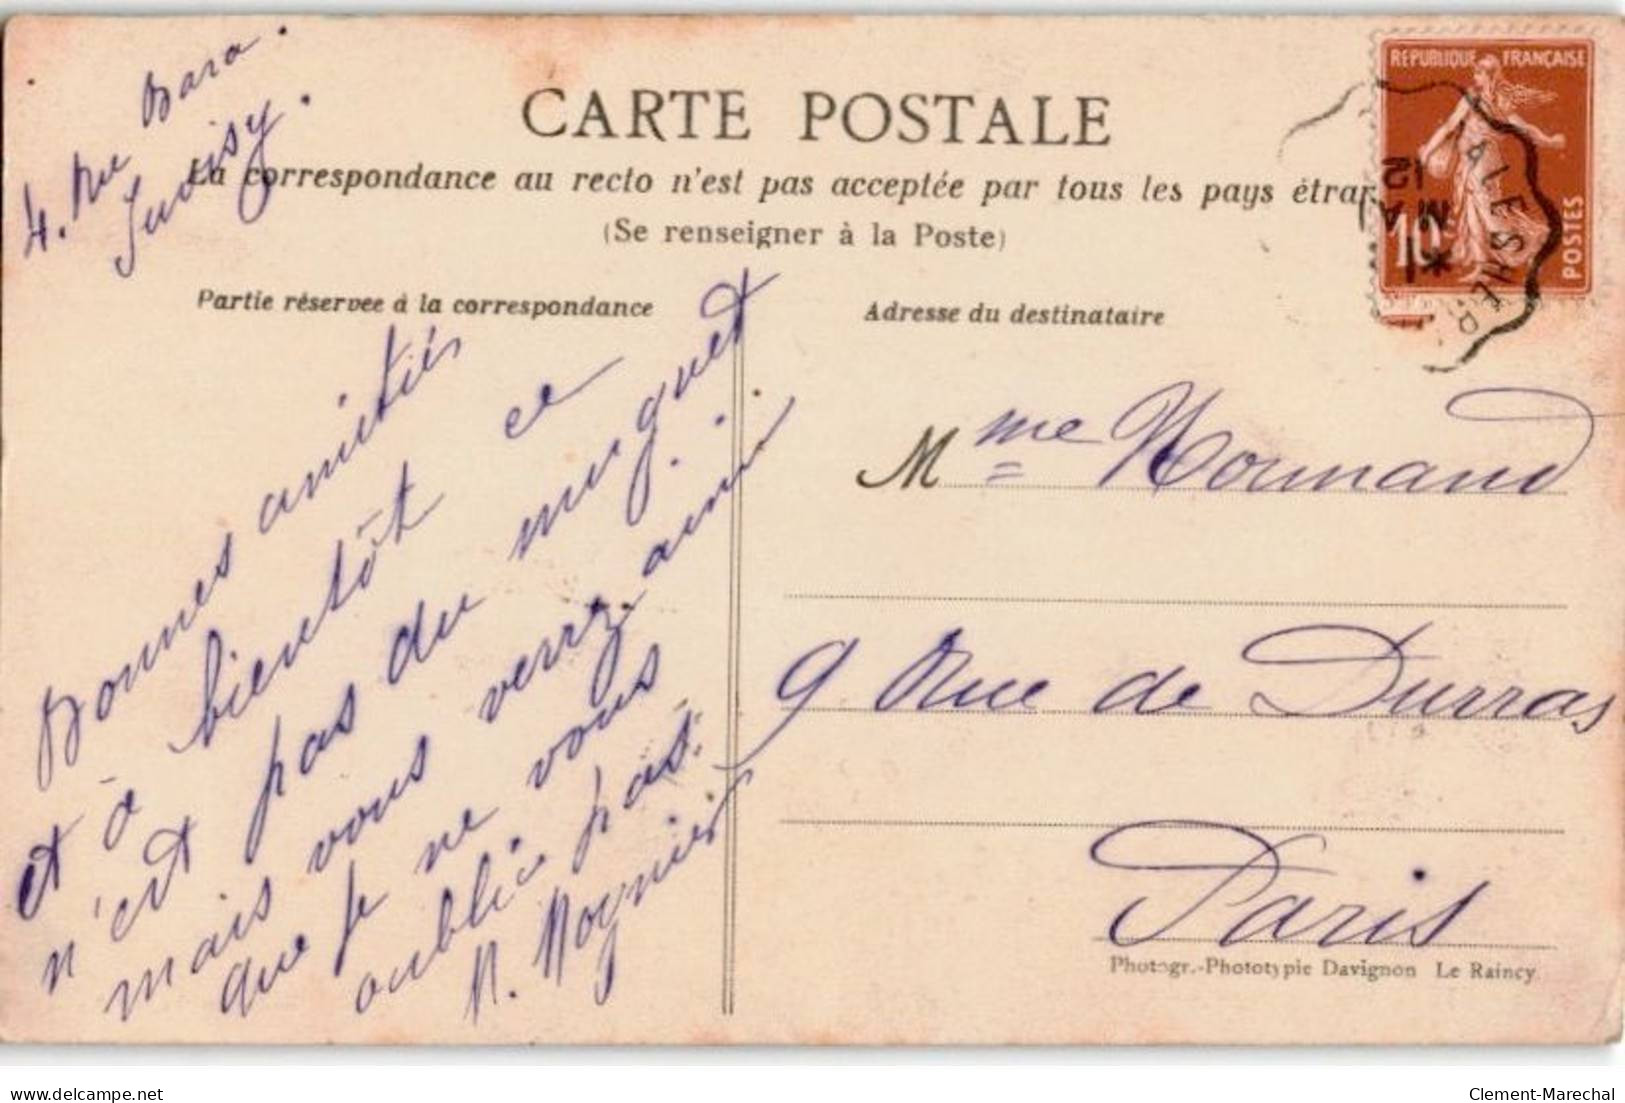 4. Rue Bara.
Juvisy.
CARTE POSTALE
La correspondance au recto n'est pas acceptée par tous les pays étran
(Se renseigner à la Poste)
Partie réservée à la correspondance
Adresse du destinataire
REPUBLIQUE FRANÇAISE
10
POSTES
12
Bonnes amitiés
et à bientôt ce
n'est pas du muguet
mais vous verrez ainsi
que je ne vous
oublie pas.
M. Moynier
Mme Normand
9 Rue de Durras
Paris
Photogr.-Phototypie Davignon Le Raincy
www.delcampe.net
Clement-Marechal